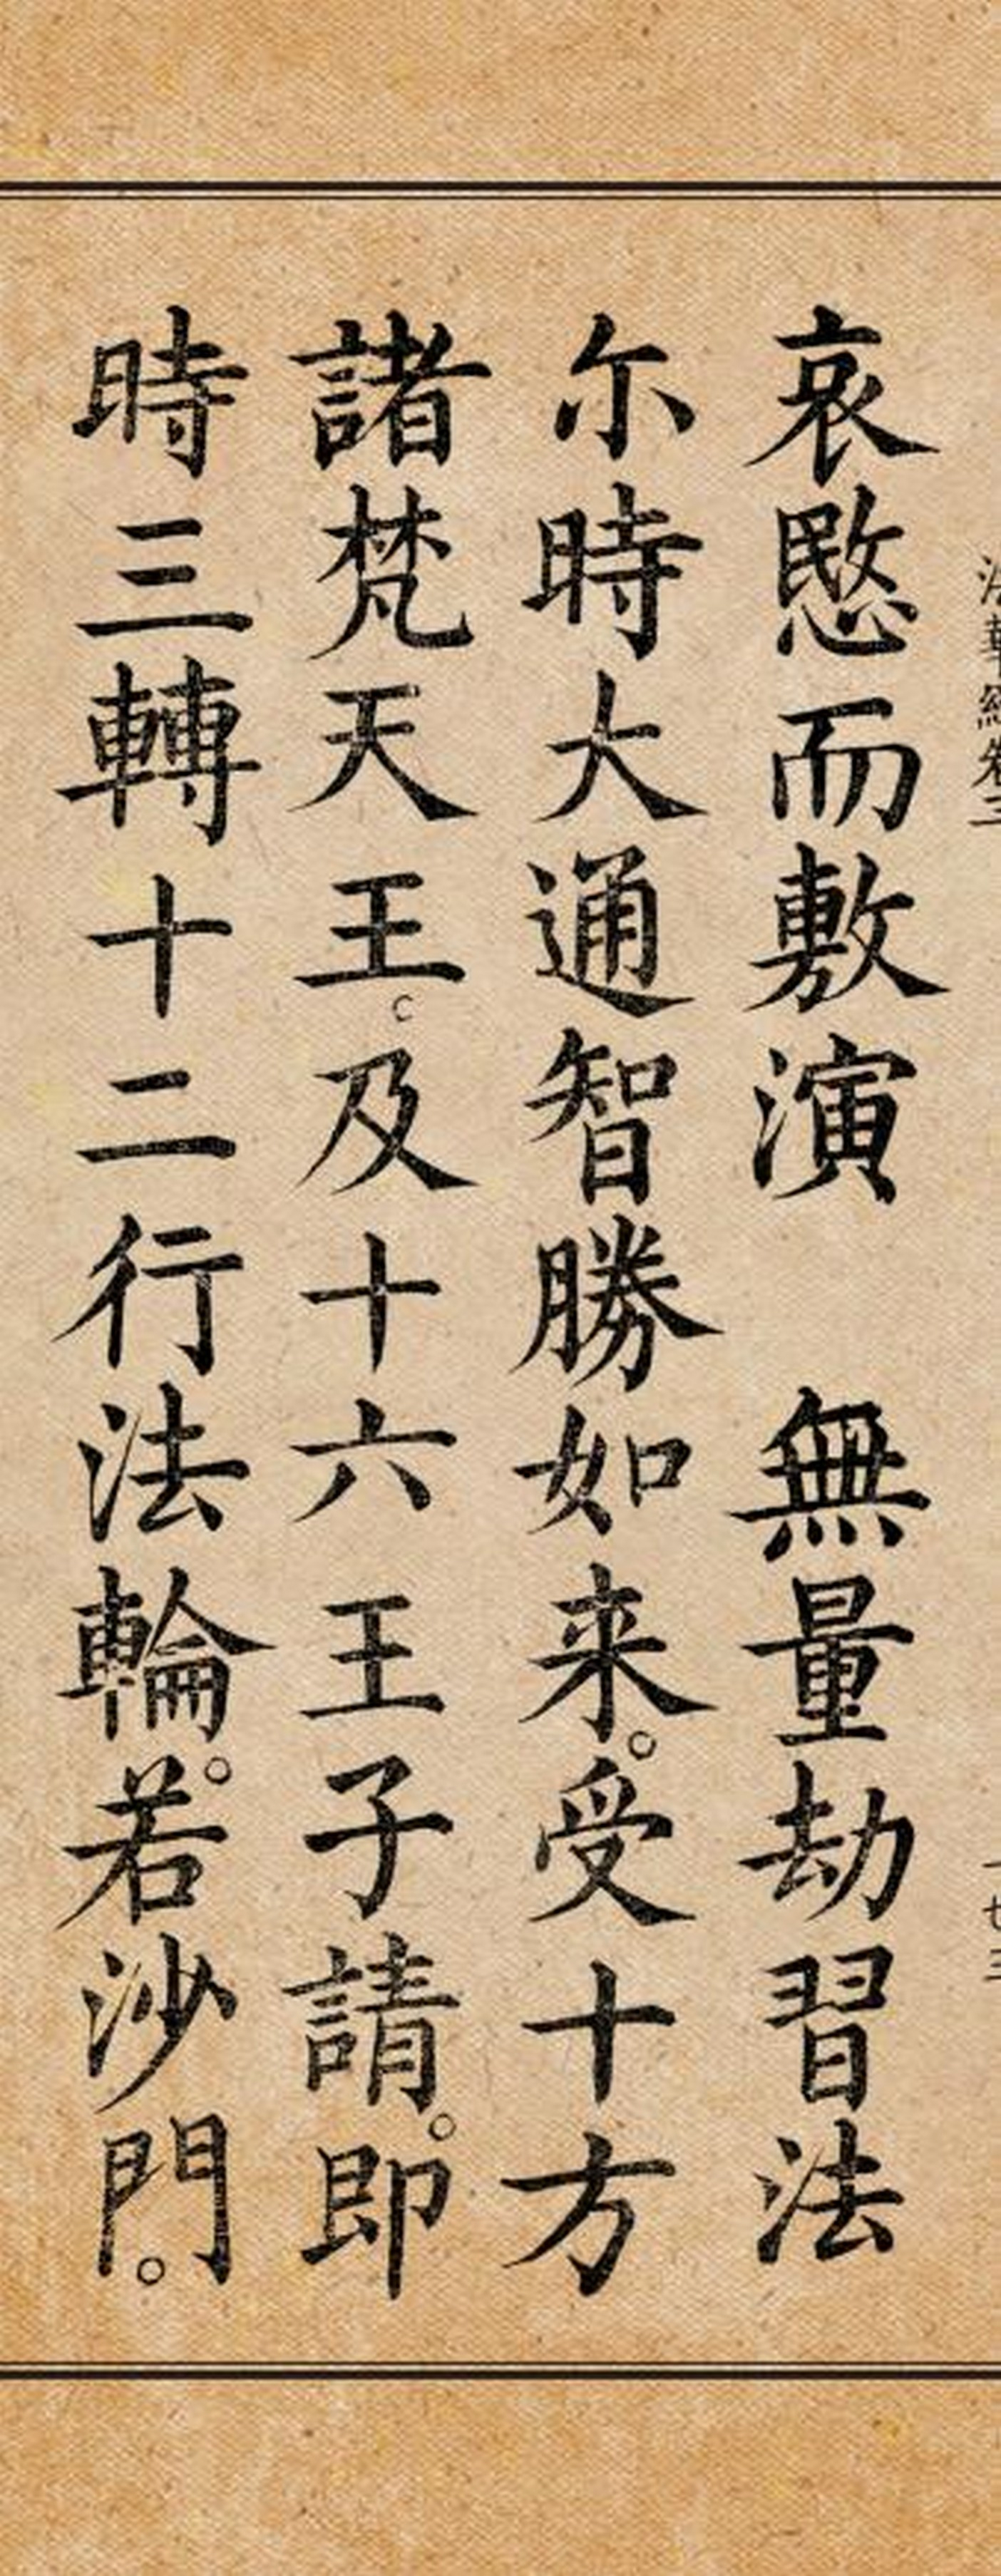 法華經卷三
哀愍而敷演　無量劫習法
尒時大通智勝如来。受十方
諸梵天王。及十六王子請。即
時三轉十二行法輪。若沙門。